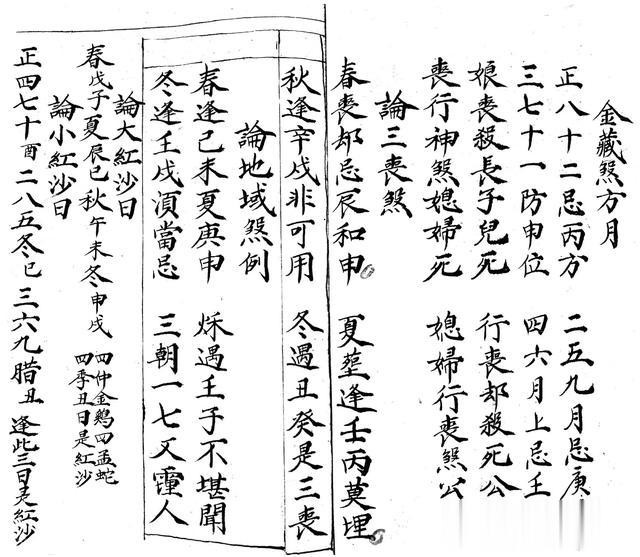 金藏煞方月
正八十二忌丙方 二五九月忌庚
三七十一防申位 四六月上忌壬
娘喪殺長子兒死 行喪却殺死公
喪行神煞媳婦死 媳婦行喪煞公
論三喪煞
春喪却忌辰和申 夏塟逢壬丙莫埋
秋逢辛戌非可用 冬遇丑癸是三喪
論地域煞例
春逢己未夏庚申 秌遇壬子不堪聞
冬逢壬戌湏當忌 三朝一七又 人
論大紅沙日
春戊子夏辰巳秋午未冬申戌 四仲金鷄四孟蛇
四季丑日是紅沙
論小紅沙日
正四七十酉二八五冬巳三六九腊丑 逢此三日是紅沙